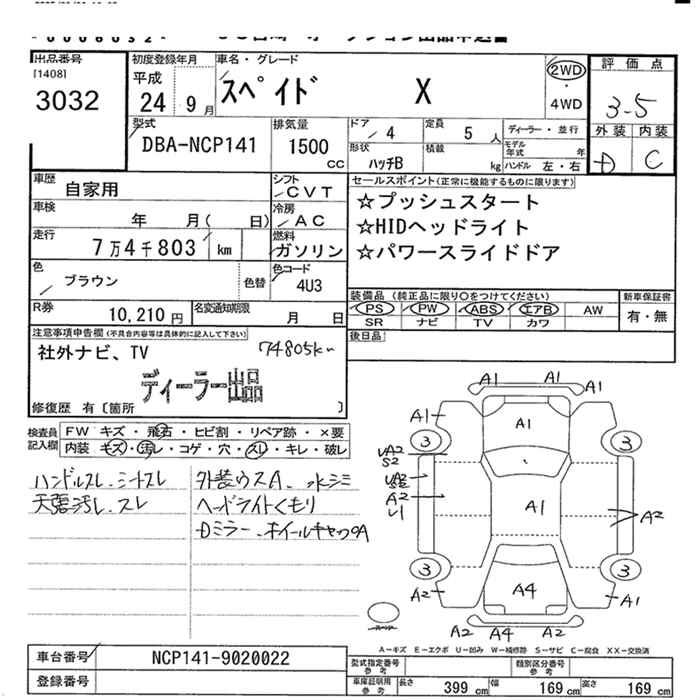 出品番号
[1408]
3032
初度登録年月
平成
24 9月
車名・グレード
スペイド X
2WD
・
4WD
評価点
3-5
外装 内装
D C
型式
DBA-NCP141
排気量
1500
CC
ドア
4
定員
5人
ディーラー・並行
形状
ハッチB
積載
kg
モデル年式 年
ハンドル 左・右
車歴
自家用
シフト
CVT
車検
年 月( 日)
冷房
AC
走行
7万4千803 km
燃料
ガソリン
色
ブラウン
色替
色コード
4U3
R券
10,210円
名変通知期限
月 日
セールスポイント(正常に機能するものに限ります)
☆プッシュスタート
☆HIDヘッドライト
☆パワースライドドア
装備品 (純正品に限り〇をつけてください)
新車保証書
PS PW ABS エアB AW
SR ナビ TV カワ
有・無
後日品
注意事項申告欄(不具合内容等は具体的に記入して下さい)
社外ナビ、TV
74805km
ディーラー出品
修復歴 有〔箇所 〕
検査員記入欄
FW キズ・飛石・ヒビ割・リペア跡・×要
内装 キズ・汚レ・コゲ・穴・スレ・キレ・破レ
ハンドルスレ、シートスレ
天張汚レ、スレ
外装ウスA、水シミ
ヘッドライトくもり
Dミラー、ホイールキャップA
A1 A1 A1
A1 A1
3 3
UA2
S2
A2
U1
A1
A2
3 3
A4
A2 A1
A2 A4 A2
A-キズ E-エクボ U-凹み W-補修跡 S-サビ C-腐食 XX-交換済
車台番号
NCP141-9020022
登録番号
型式指定番号
参考
類別区分番号
参考
車庫証明用
参考
長さ 399cm 幅 169cm 高さ 169cm